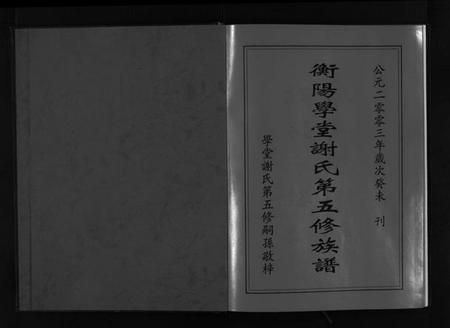 公元二零零三年歲次癸未 刊
衡陽學堂謝氏第五修族譜
學堂謝氏第五修嗣孫敬梓